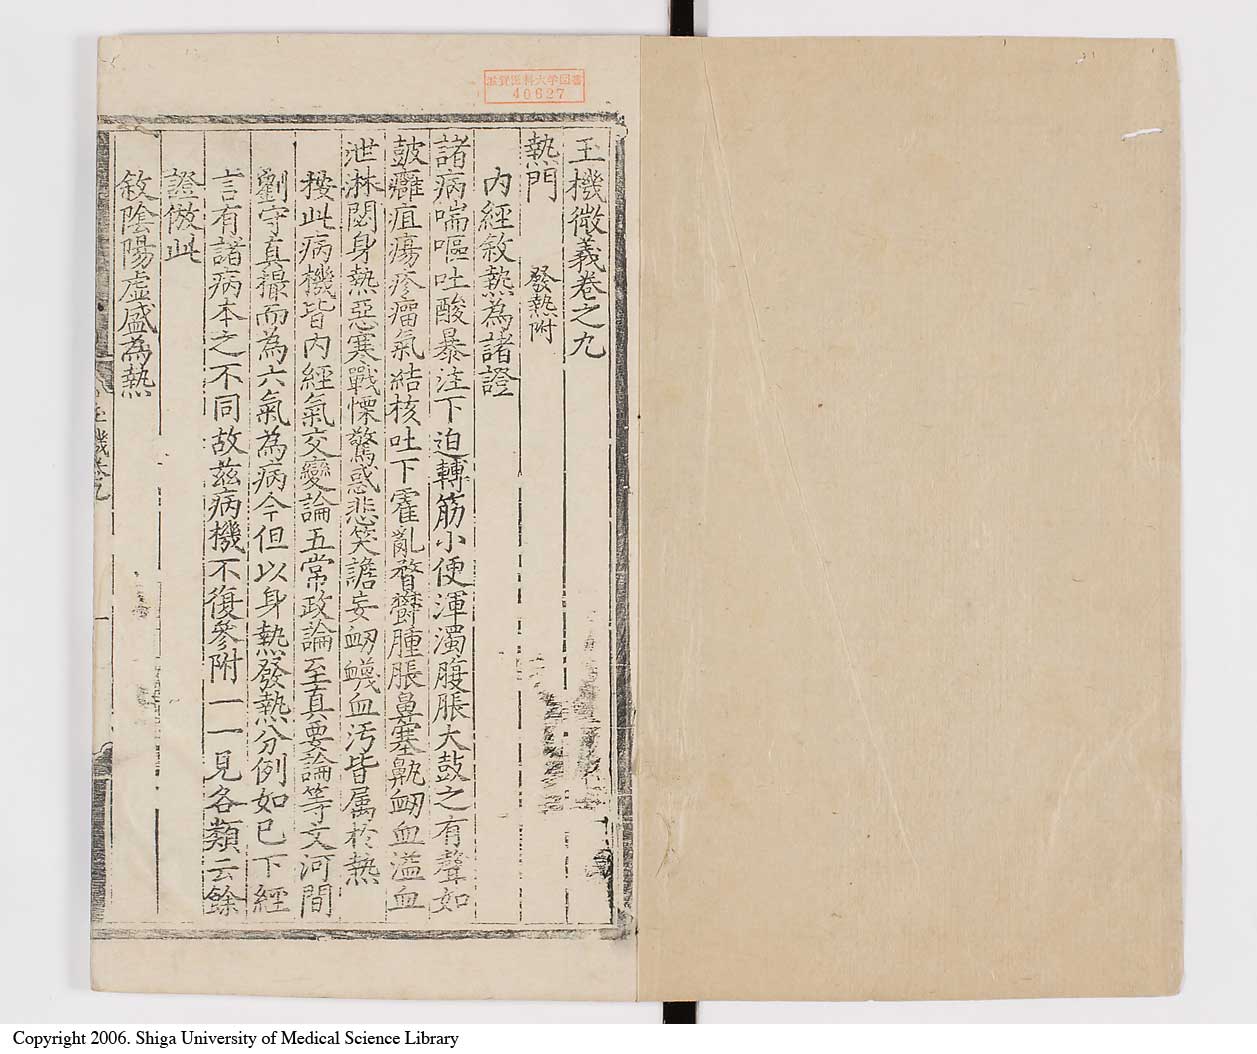 滋賀医科大学図書
40627
玉機微義卷之九
熱門 發熱附
內經敘熱為諸證
諸病喘嘔吐酸暴注下迫轉筋小便渾濁腹脹大鼓之有聲如
鼓癰疽瘍疹瘤氣結核吐下霍亂瞀鬱腫脹鼻塞鼽衄血溢血
泄淋閟身熱惡寒戰慄驚惑悲笑譫妄衄衊血汚皆属於熱
按此病機皆內經氣交變論五常政論至真要論等文河間
劉守真撮而為六氣為病今但以身熱發熱分例如已下經
言有諸病本之不同故茲病機不復參附一一見各類云餘
證倣此
敘陰陽虛盛為熱
玉機卷九
一
Copyright 2006. Shiga University of Medical Science Library